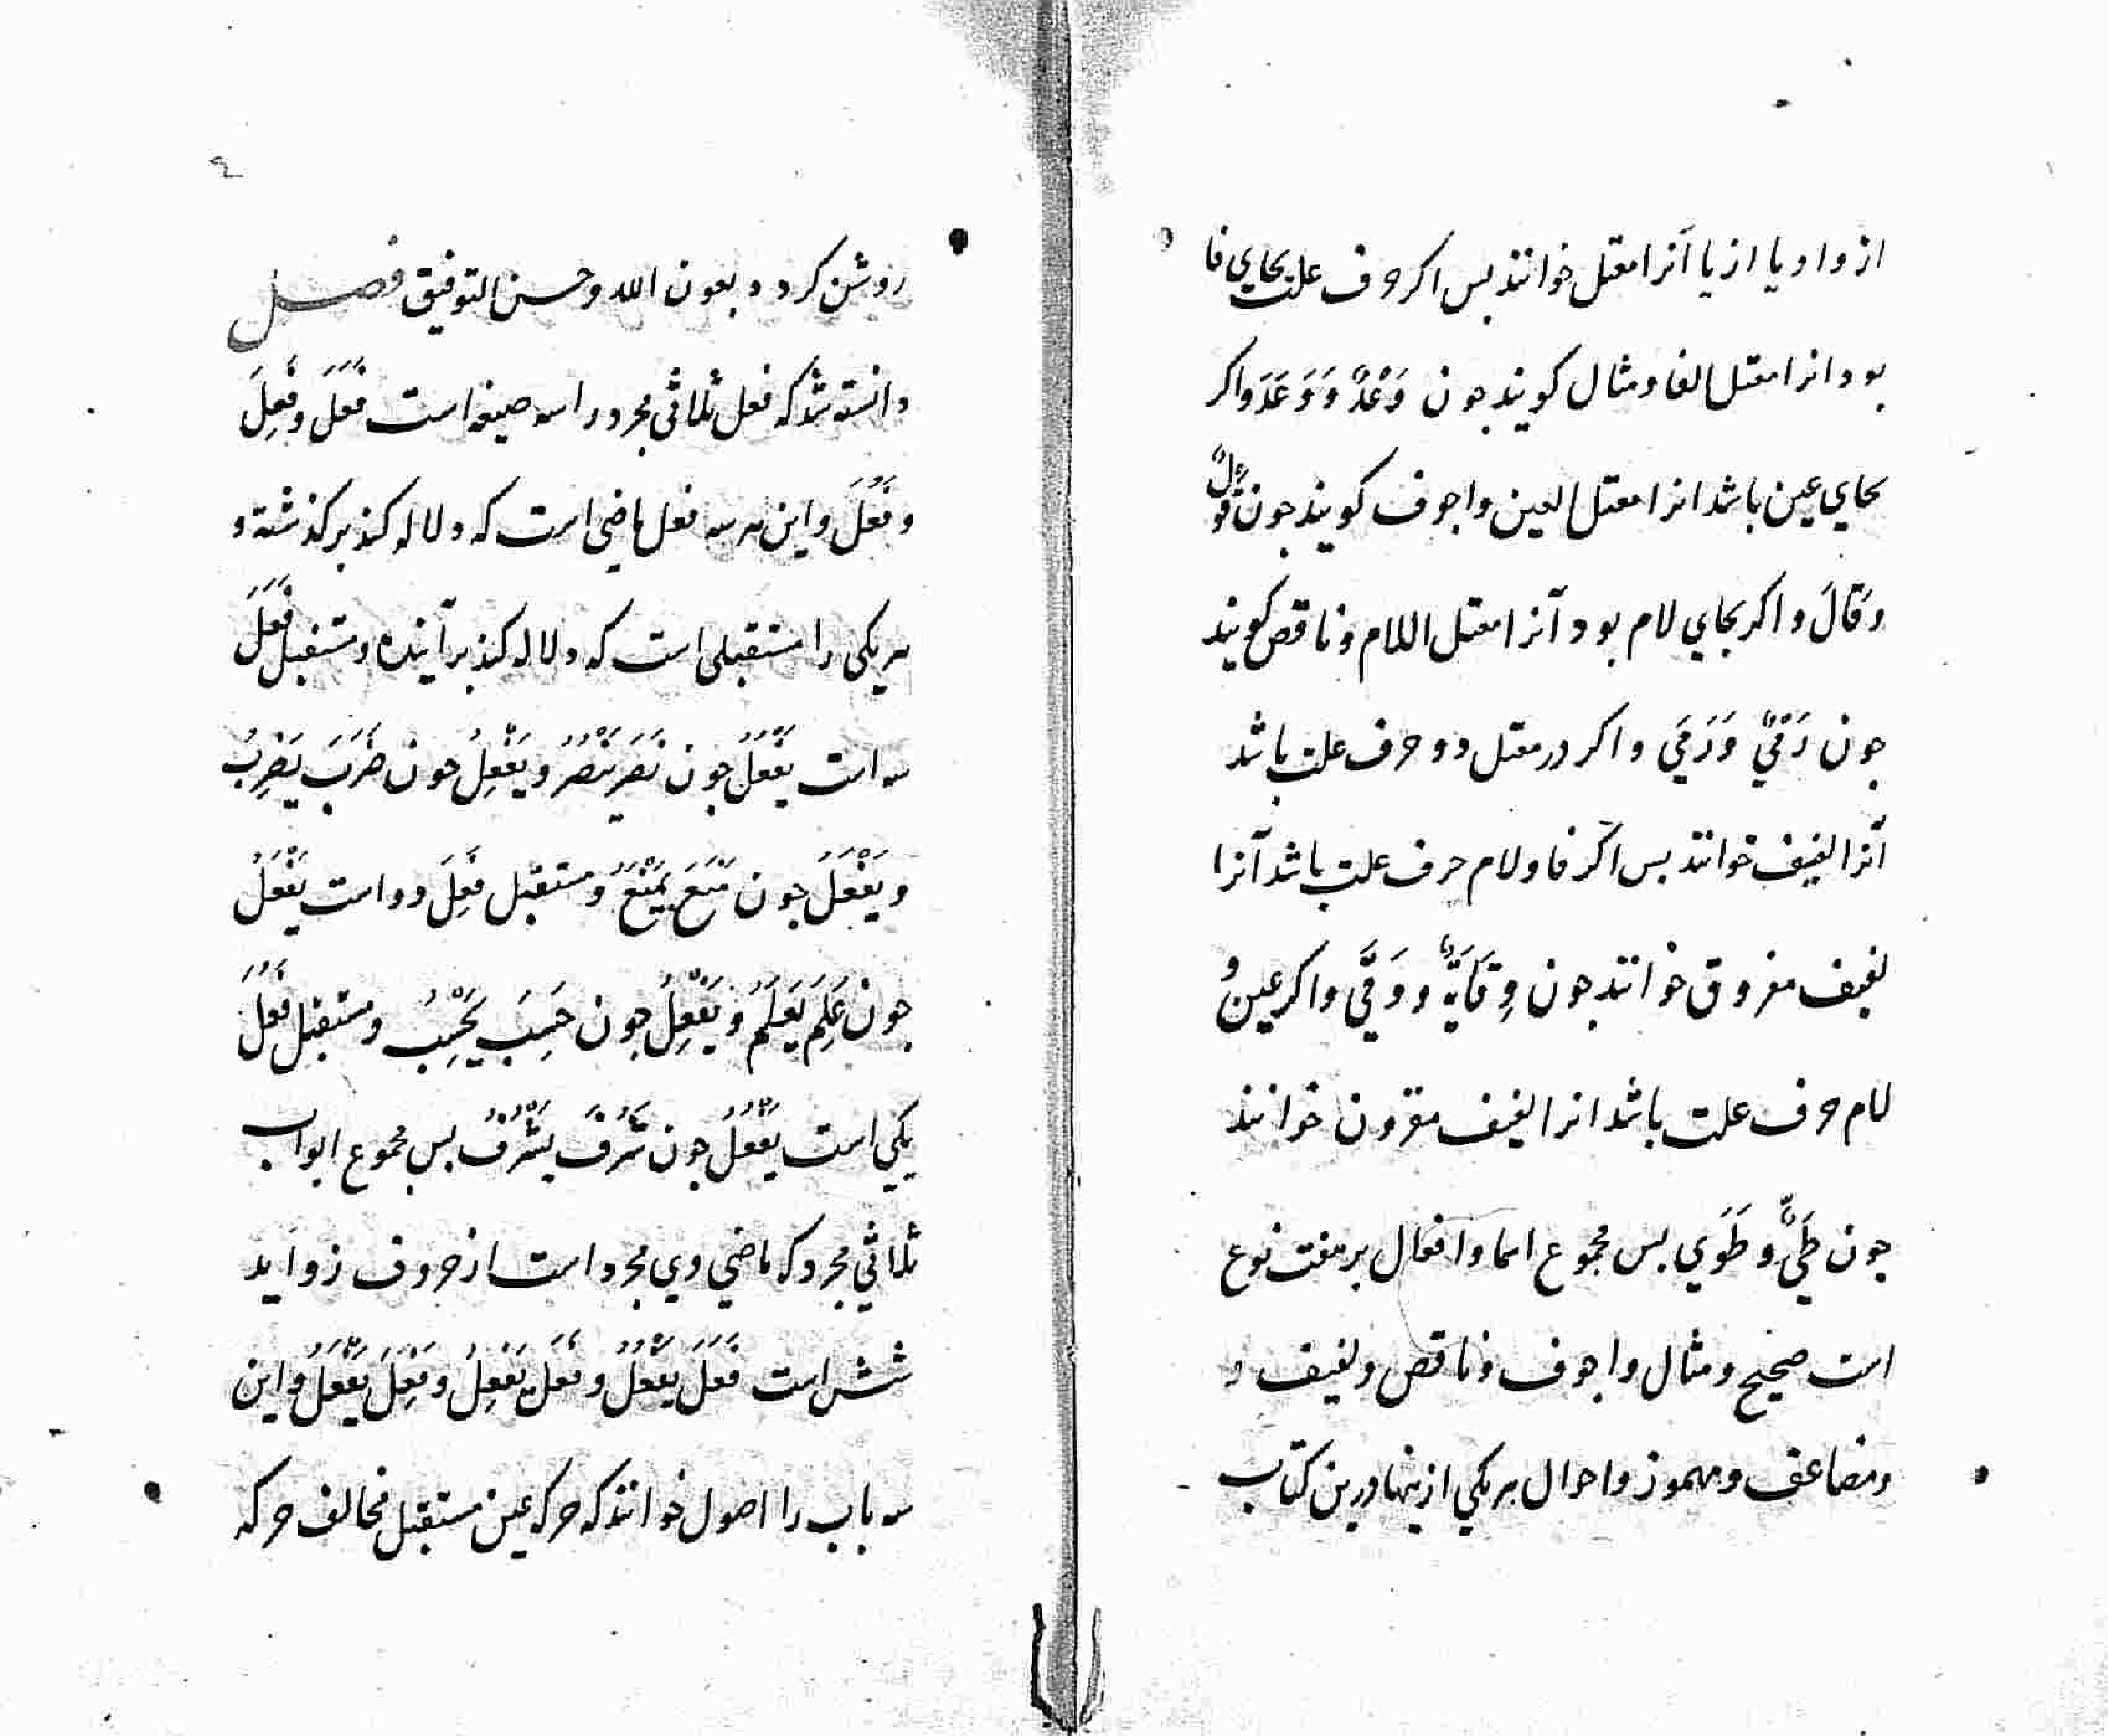 از واو یا از یا آنرا معتل خوانند بس اکر حرف علت بجاي فا
بود انرا معتل الفا و مثال کویند جون وَعْدٌ وَ وَعَدَ واکر
بجاي عین باشد انرا معتل العین واجوف کویند جون قَوْلٌ
وقَالَ واکر بجاي لام بود آنرا معتل اللام وناقص کویند
جون رَمْيٌ وَرَمَي واکر در معتل دو حرف علت باشد
آنرا لفیف خوانند بس اکر فا ولام حرف علت باشد آنرا
لفیف مفروق خوانند جون وِقَايَةٌ و وَقَي واکر عین و
لام حرف علت باشد انرا لفیف مقرون خوانند
جون طَيٌّ و طَوَي بس مجموع اسما وافعال برهفت نوع
است صحیح ومثال واجوف وناقص ولفیف و
ومضاعف ومهموز واحوال هریکي ازینها درین کتاب
٩
روشن کردد بعون الله وحسن التوفیق فصل
دانسته شد که فعل ثلاثی مجرد را سه صیغه است فَعَلَ وفَعِلَ
وفَعُلَ واین هر سه فعل ماضی است که دلاله کند بر کذشته و
هر یکی را مستقبلی است که دلاله کند بر آینده ومستقبل فَعَلَ
سه است یَفْعُلُ جون نَصَرَ یَنْصُرُ ویَفْعِلُ جون ضَرَبَ یَضْرِبُ
ویَفْعَلُ جون مَنَعَ یَمْنَعُ ومستقبل فَعِلَ دو است یَفْعَلُ
جون عَلِمَ یَعْلَمُ ویَفْعِلُ جون حَسِبَ یَحْسِبُ ومستقبل فَعُلَ
یکي است یَفْعُلُ جون شَرُفَ یَشْرُفُ بس مجموع ابواب
ثلاثي مجرد که ماضي وي مجرد است از حروف زواید
شش است فَعَلَ یَفْعُلُ وفَعَلَ یَفْعِلُ وفَعِلَ یَفْعَلُ واین
سه باب را اصول خوانند که حرکه عین مستقبل مخالف حرکه